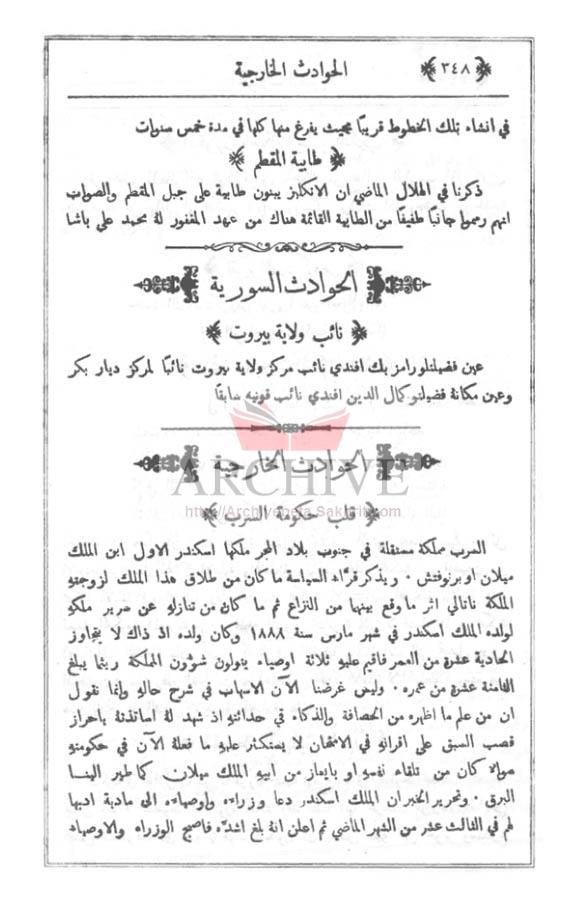 ﴿ ٣٤٨ ﴾ الحوادث الخارجية
في انشاء تلك الخطوط قريبًا بحيث يفرغ منها كلها في مدة خمس سنوات
﴿ طابية المقطم ﴾
ذكرنا في الهلال الماضي ان الانكليز يبنون طابية على جبل المقطم والصواب
انهم رمموا جانبًا طفيفًا من الطابية القائمة هناك من عهد المغفور لهُ محمد علي باشا
الحوادث السورية
﴿ نائب ولاية بيروت ﴾
عين فضيلتلو رامز بك افندي نائب مركز ولاية بيروت نائبًا لمركز ديار بكر
وعين مكانهُ فضيلتلو كمال الدين افندي نائب قونيه سابقًا
الحوادث الخارجية
ARCHIVE
http://Archivebeta.Sakhrit.com
﴿ قلب حكومة السرب ﴾
السرب مملكة مستقلة في جنوب بلاد المجر ملكها اسكندر الاول ابن الملك
ميلان اوبرنوفتش . ويذكر قراء السياسة ما كان من طلاق هذا الملك لزوجتهِ
الملكة ناتالي اثر ما وقع بينهما من النزاع ثم ما كان من تنازلهِ عن سرير ملكهِ
لولده الملك اسكندر في شهر مارس سنة ١٨٨٨ وكان ولده اذ ذاك لا يتجاوز
الحادية عشرة من العمر فاقيم عليهِ ثلاثة اوصياء يتولون شؤون المملكة ريثما يبلغ
الثامنة عشرة من عمره . وليس غرضنا الآن الاسهاب في شرح حالهِ وانما نقول
ان من علم ما اظهره من الحصافة والذكاء في حداثتهِ اذ شهد لهُ اساتذتهُ باحراز
قصب السبق على اقرانهِ في الامتحان لا يستكثر عليهِ ما فعلهُ الآن في حكومتهِ
سواء كان من تلقاء نفسهِ او بايعاز من ابيهِ الملك ميلان كما طير الينا
البرق . وتحرير الخبر ان الملك اسكندر دعا وزراءه واوصياءه الى مادبة ادبها
لهم في الثالث عشر من الشهر الماضي ثم اعلن انهُ بلغ اشده فاصبح الوزراء والاوصياء